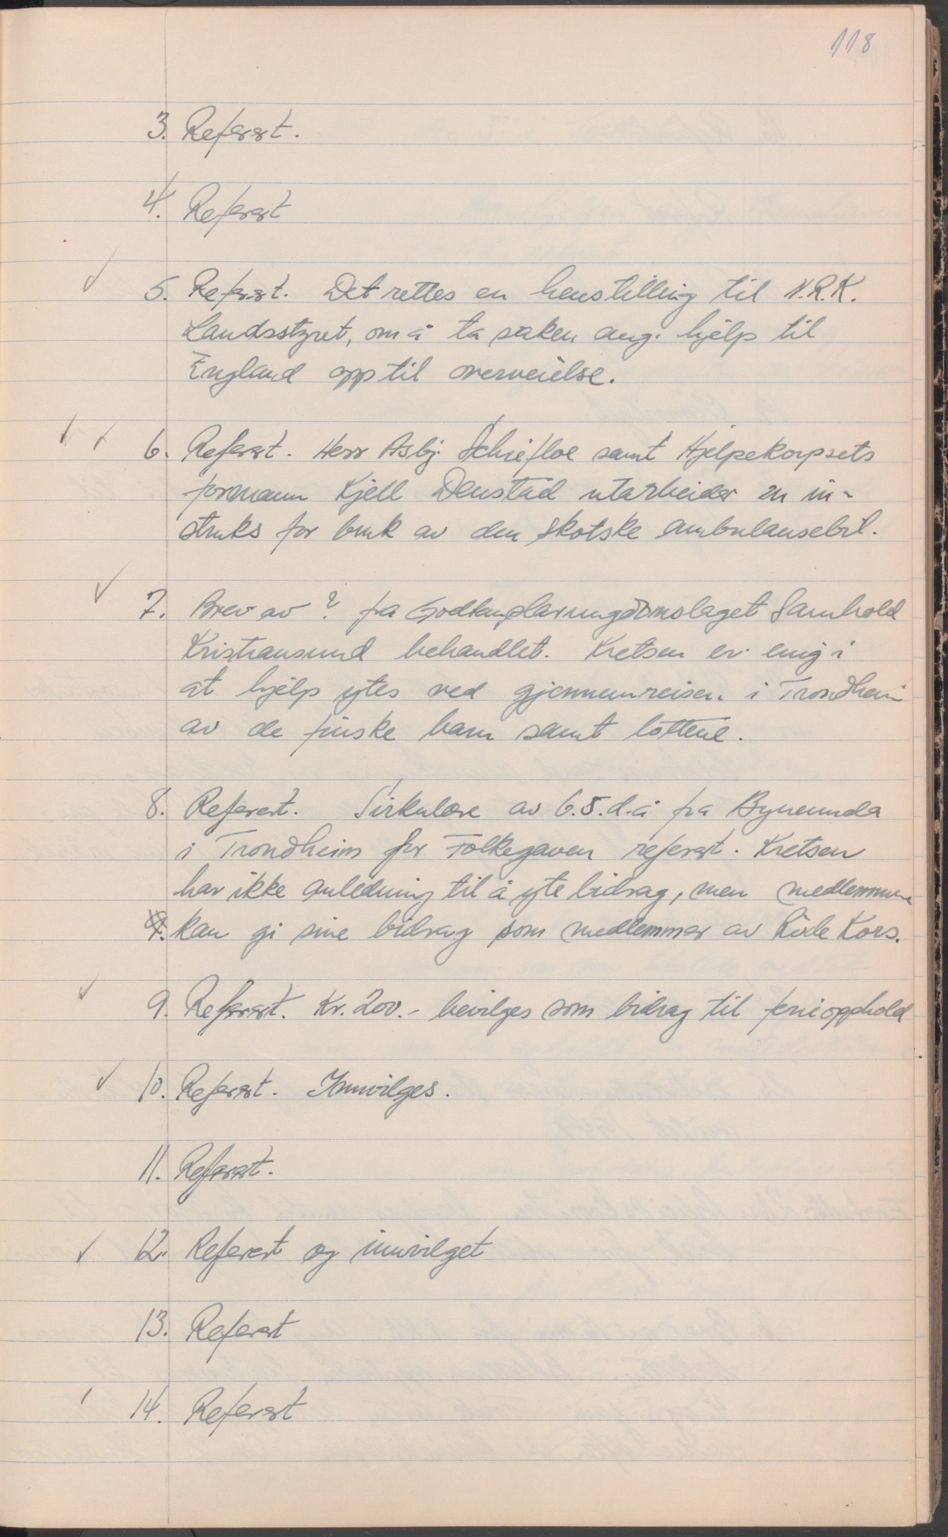 118
3. Referert.
4. Referert
5. Referert. Det rettes en henstilling til N.R.K.
Landsstyret, om å ta saken ang. hjelp til
England opp til overveielse.
6. Referert. Herr Asbj. Schiefloe samt Hjelpekorpsets
formann Kjell Denstad utarbeider en in-
struks for bruk av den skotske ambulansebil.
7. Brev av ? fra Samhold
Kristiansund behandlet. Kretsen er enig i
at hjelp ytes ved gjennemreisen i Trondheim
av de finske barn samt lottene.
8. Referert. Sirkulære av 6.5.d.å fra Bynemnda
i Trondheim for Folkegaven referert. Kretsen
har ikke anledning til å yte bidrag, men medlemmene
kan gi sine bidrag som medlemmer av Røde Kors.
9. Referert. Kr. 200.- bevilges som bidrag til ferieopphold
10. Referert. Innvilges.
11. Referert.
12. Referert og innvilget
13. Referert
14. Referert